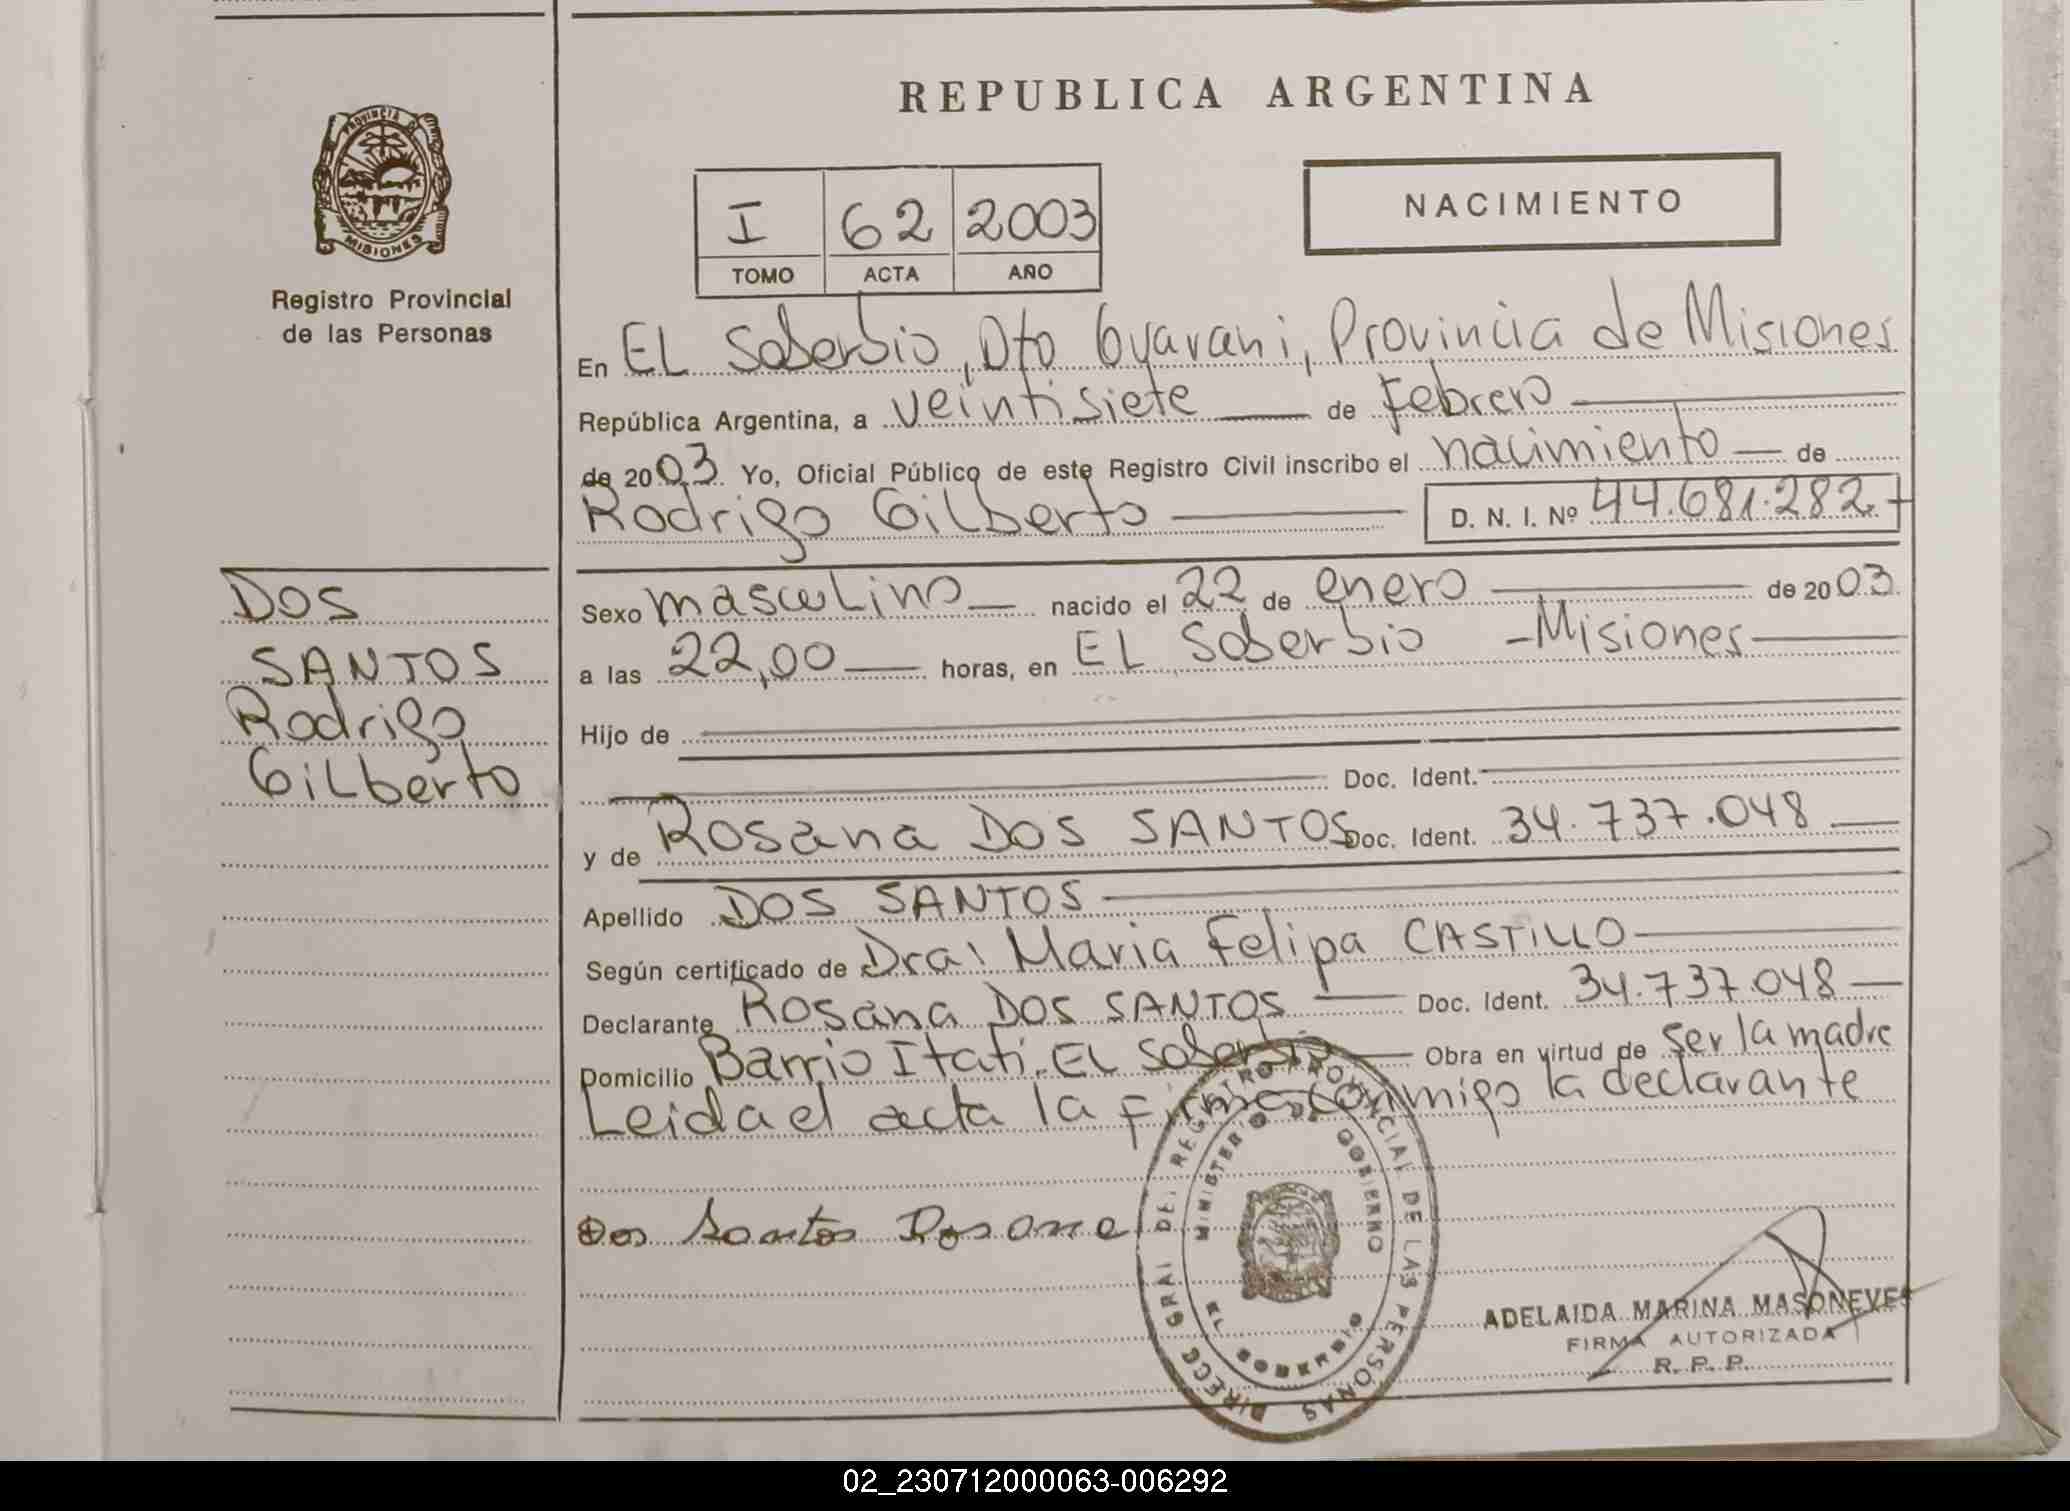 REPUBLICA ARGENTINA
PROVINCIA DE
MISIONES
Registro Provincial
de las Personas
I 62 2003
TOMO ACTA AÑO
NACIMIENTO
En EL Soberbio, Dto Guarani, Provincia de Misiones
República Argentina, a veintisiete de Febrero
de 2003 Yo, Oficial Público de este Registro Civil inscribo el nacimiento de
Rodrigo Gilberto D. N. I. Nº 44.681.282.
DOS
SANTOS
Rodrigo
Gilberto
Sexo masculino nacido el 22 de enero de 2003
a las 22,00 horas, en EL Soberbio - Misiones
Hijo de
Doc. Ident.
y de Rosana DOS SANTOS Doc. Ident. 34.737.048
Apellido DOS SANTOS
Según certificado de Dra: Maria Felipa CASTILLO
Declarante Rosana DOS SANTOS Doc. Ident. 34.737.048
Domicilio Barrio Itatí. EL Soberbio Obra en virtud de ser la madre
Leida el acta la firma conmigo la declarante
Dos Santos Rosana
DIRECC GRAL DEL REGISTRO PROVINCIAL DE LAS PERSONAS
MINISTERIO GOBIERNO
EL SOBERBIO
ADELAIDA MARINA MASONEVES
FIRMA AUTORIZADA
R. P. P.
02_230712000063-006292